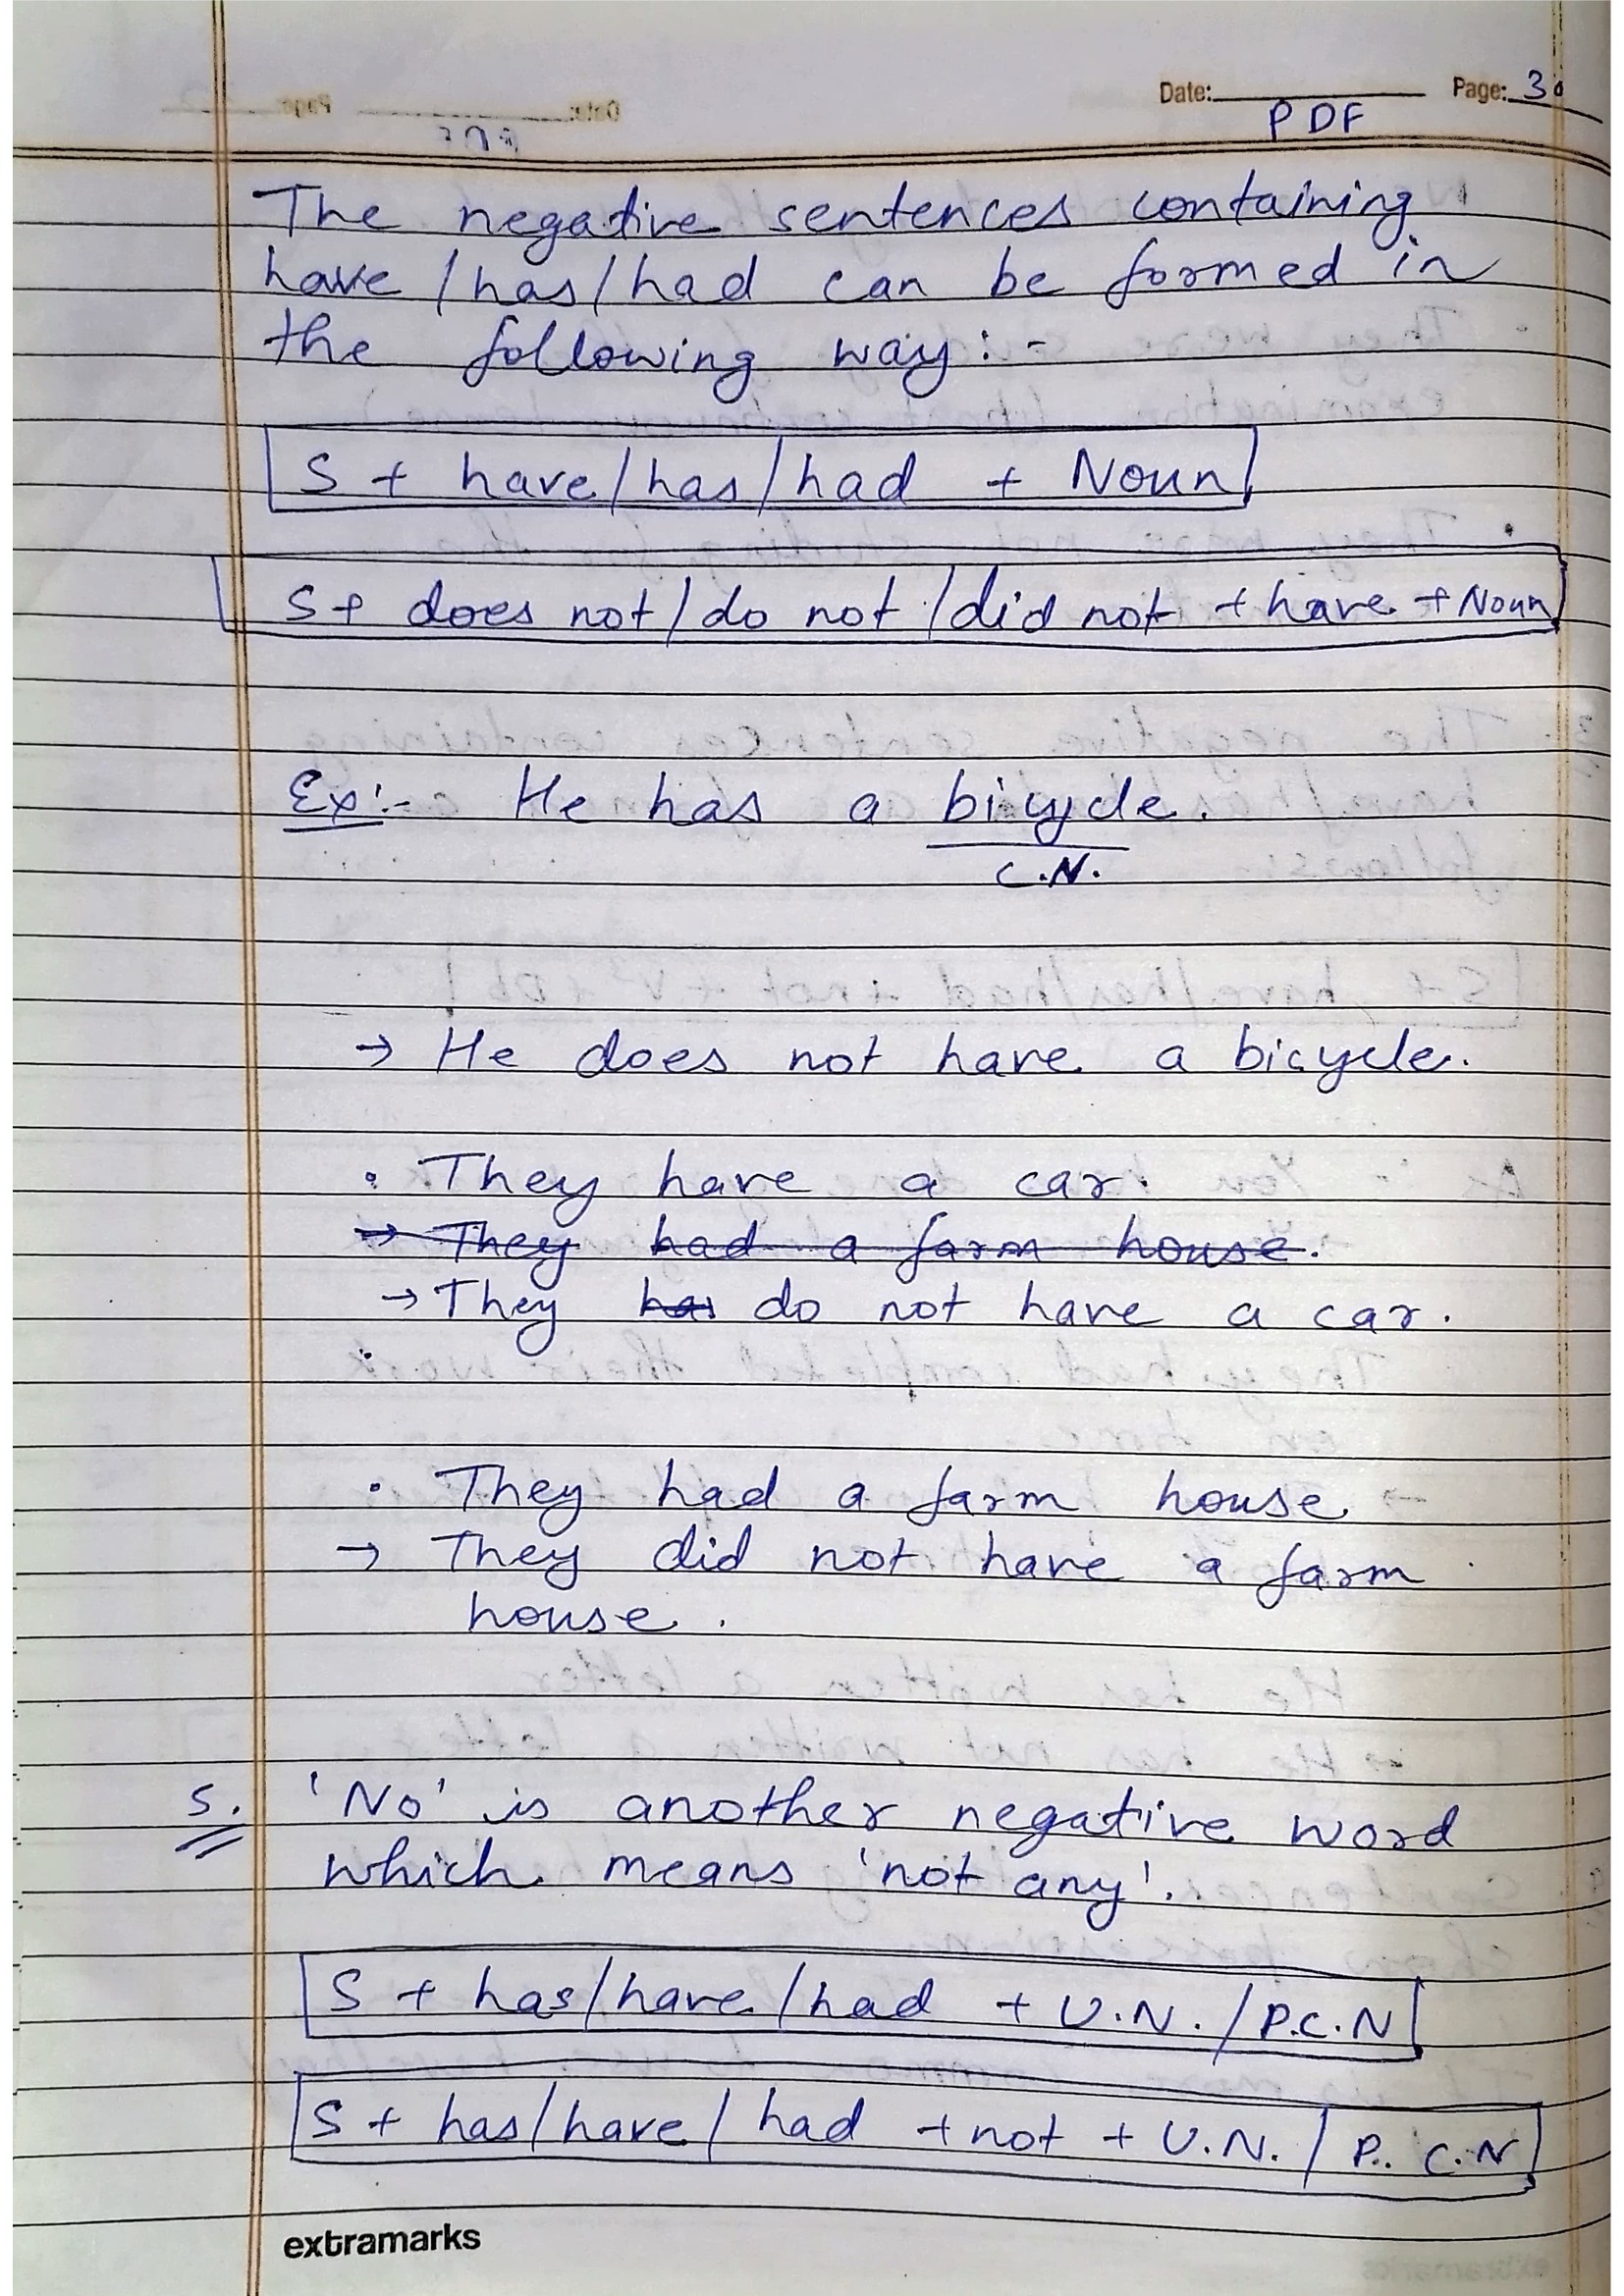 Date: Page: 30
PDF
The negative sentences containing
have/has/had can be formed in
the following way:-
S + have/has/had + Noun
S+ does not/do not/did not + have + Noun
Ex:- He has a bicycle.
C.N.
→ He does not have a bicycle.
• They have a car.
→ They had a farm house.
→ They has do not have a car.
• They had a farm house.
→ They did not have a farm
house.
5. 'No' is another negative word
which means 'not any'.
S + has/have/had + U.N./P.C.N
S + has/have/had + not + U.N./P.C.N
extramarks